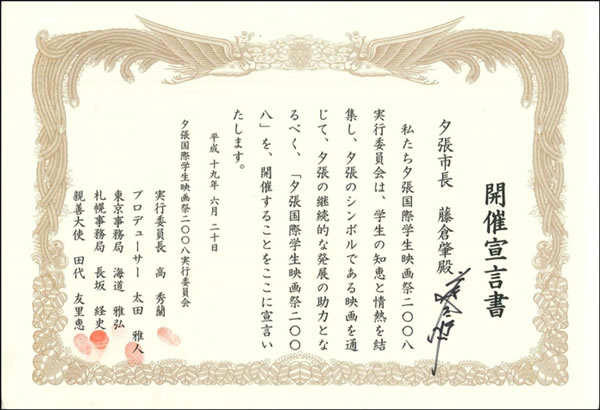 開催宣言書
夕張市長　藤倉肇殿
私たち夕張国際学生映画祭二〇〇八
実行委員会は、学生の知恵と情熱を結
集し、夕張のシンボルである映画を通
じて、夕張の継続的な発展の助力とな
るべく、「夕張国際学生映画祭二〇〇
八」を、開催することをここに宣言い
たします。
平成十九年六月二十日
夕張国際学生映画祭二〇〇八実行委員会
実行委員長　高　秀蘭
プロデューサー　太田　雅人
東京事務局　海道　雅弘
札幌事務局　長坂　経史
親善大使　田代　友里恵